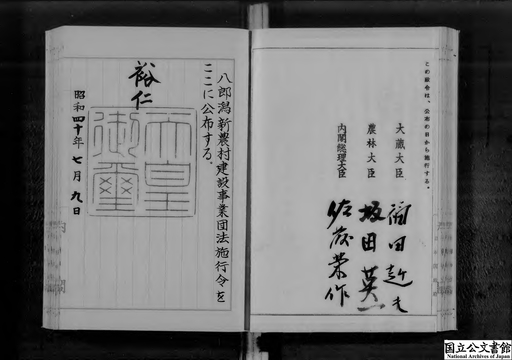 この政令は、公布の日から施行する。
大蔵大臣 福田赳夫
農林大臣 坂田英一
内閣総理大臣 佐藤栄作
八郎潟新農村建設事業団法施行令を
ここに公布する。
裕仁
天皇御璽
昭和四十年七月九日
国立公文書館
National Archives of Japan